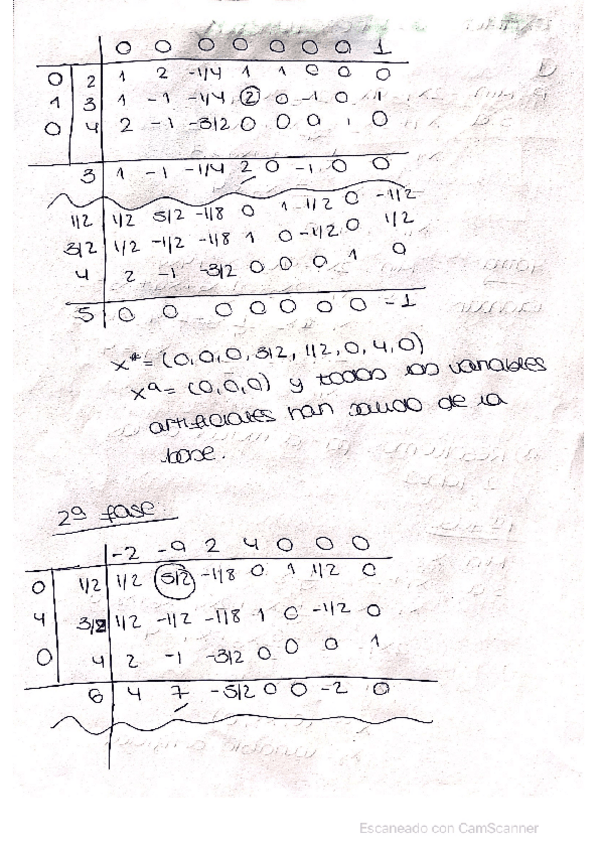 0 0 0 0 0 0 0 1
0 2 1 2 -1/4 1 1 0 0 0
1 3 1 -1 -1/4 2 0 -1 0 1
0 4 2 -1 -3/2 0 0 0 1 0
3 1 -1 -1/4 2 0 -1 0 0
1/2 1/2 5/2 -1/8 0 1 1/2 0 -1/2
3/2 1/2 -1/2 -1/8 1 0 -1/2 0 1/2
4 2 -1 -3/2 0 0 0 1 0
5 0 0 0 0 0 0 0 -1
x* = (0,0,0,3/2,1/2,0,4,0)
xª = (0,0,0) y todas las variables
artificiales han salido de la
base.
2ª fase
-2 -9 2 4 0 0 0
0 1/2 1/2 5/2 -1/8 0 1 1/2 0
4 3/2 1/2 -1/2 -1/8 1 0 -1/2 0
0 4 2 -1 -3/2 0 0 0 1
6 4 7 -5/2 0 0 -2 0
Escaneado con CamScanner